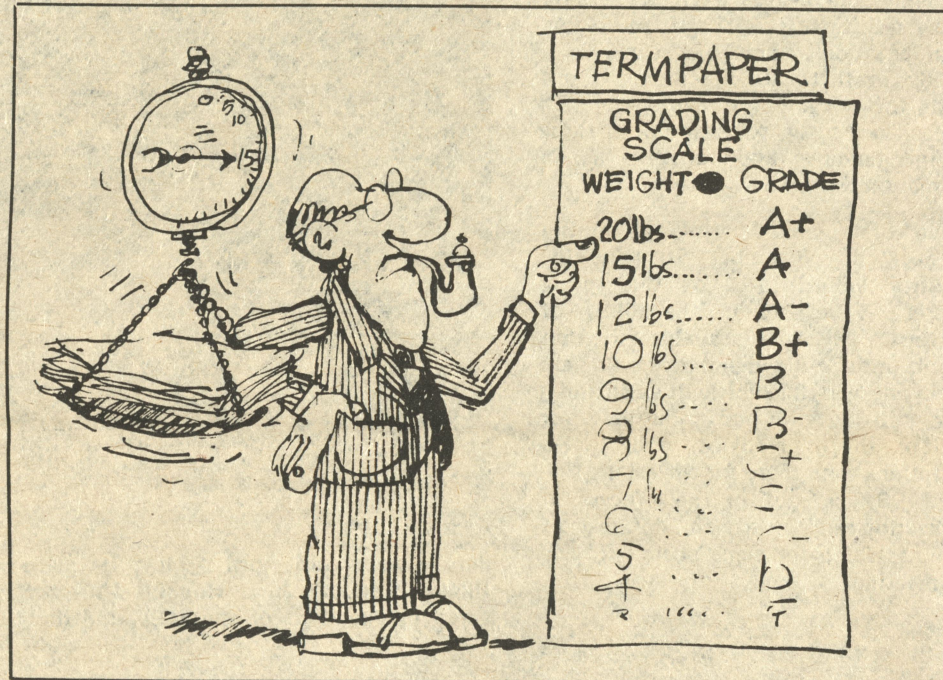 0 5 10
15
TERM PAPER
GRADING
SCALE
WEIGHT ● GRADE
20lbs........ A+
15 lbs....... A
12 lbs...... A-
10 lbs .... B+
9 lbs .... B
8 lbs .. B-
7 lbs .... C+
6 ....
5 .... D
4